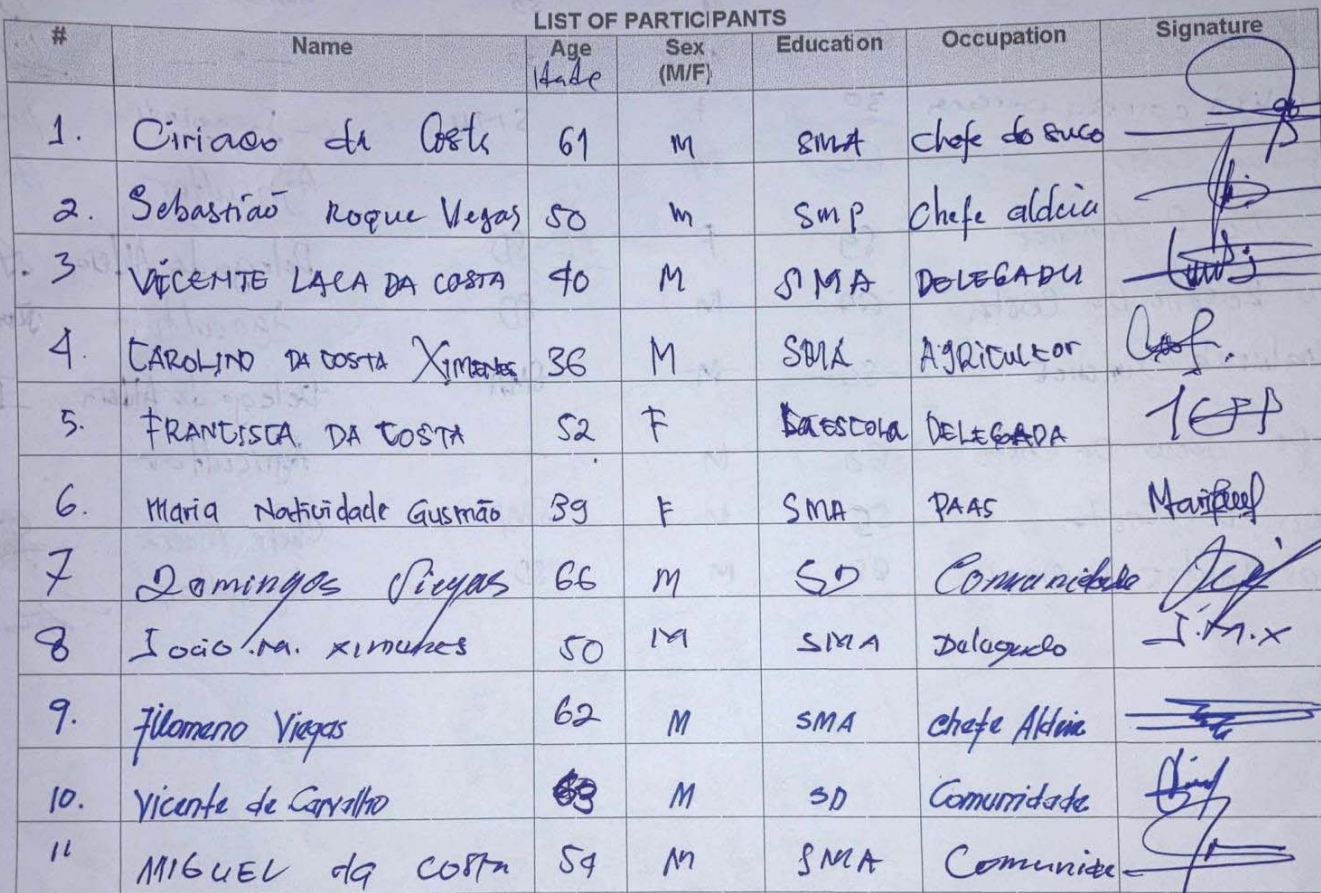 LIST OF PARTICIPANTS
# Name Age Idade Sex (M/F) Education Occupation Signature
1. Ciriaco da Costa 61 M SMA Chefe do suco
2. Sebastião Roque Viegas 50 M SMP Chefe aldeia
3 VICENTE LACA DA COSTA 40 M SMA DELEGADU
4. CAROLINO DA COSTA XIMENES 36 M SMA AGRICULTOR
5. FRANCISCA DA COSTA 52 F ESCOLA DELEGADA
6. Maria Natividade Gusmão 39 F SMA PAAS
7 Domingos Viegas 66 M SD Comunidade
8 Joao .M. ximenes 50 M SMA J.M.X
9. Filomeno Viegas 62 M SMA chefe Aldeia
10. Vicente de Carvalho M SD Comunidade
11 MIGUEL da COSTA 54 M SMA